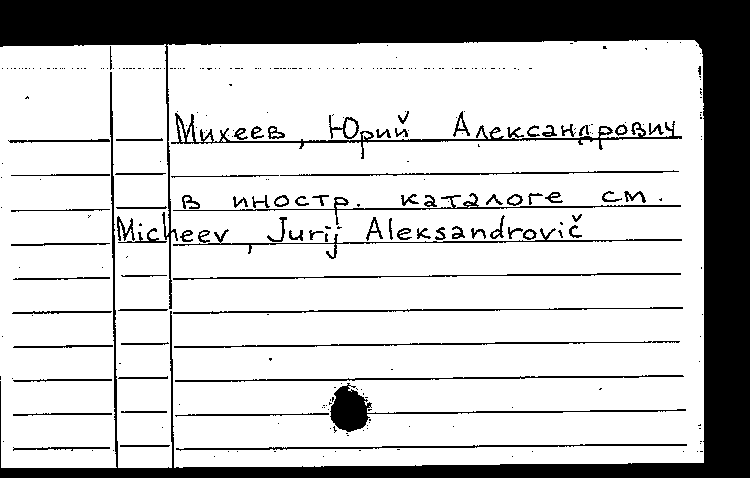 Михеев, Юрий Александрович
в иностр. каталоге см.
Micheev, Jurij Aleksandrovič